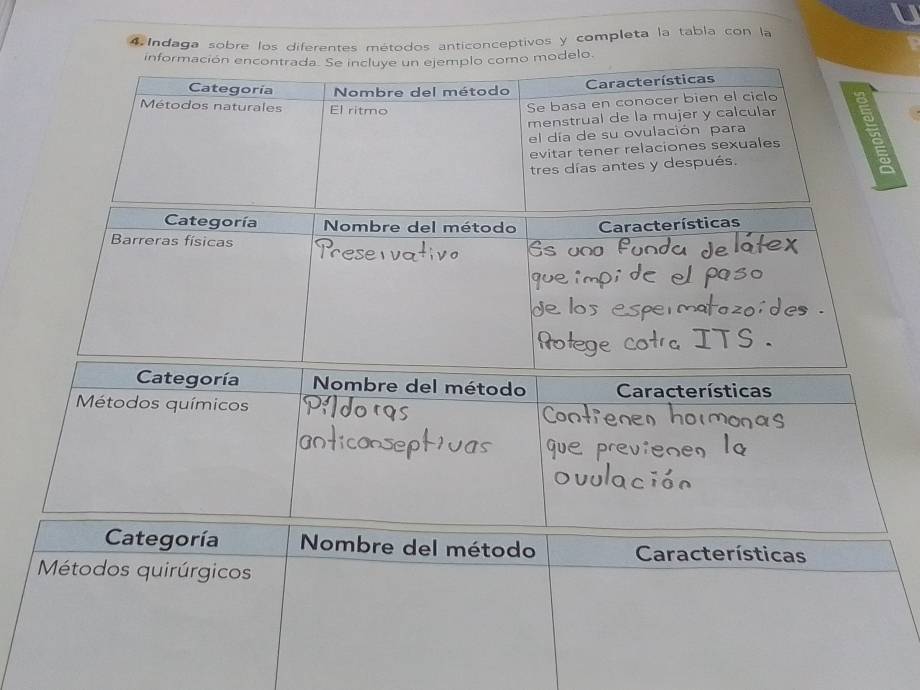 4. Indaga sobre los diferentes métodos anticonceptivos y completa la tabla con la
información encontrada. Se incluye un ejemplo como modelo.
Categoría Nombre del método Características
Métodos naturales El ritmo Se basa en conocer bien el ciclo
menstrual de la mujer y calcular
el día de su ovulación para
evitar tener relaciones sexuales
tres días antes y después.
Categoría Nombre del método Características
Barreras físicas Preservativo Es una funda de latex
que impide el paso
de los espermatozoides.
Protege cotra ITS.
Categoría Nombre del método Características
Métodos químicos Píldoras Contienen hormonas
anticonseptivas que previenen la
ovulación
Categoría Nombre del método Características
Métodos quirúrgicos
Demostremos